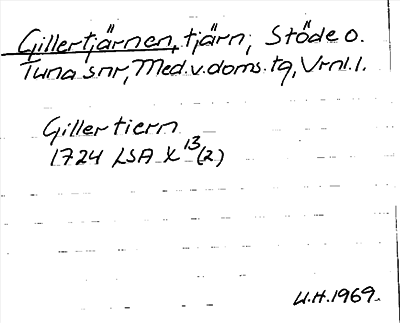 Gillertjärnen, tjärn, Stöde o.
Tuna snr, Med.v.doms.tg, Vrnl.l.
Gillertiern
1724 LSA X 13(2)
U.H.1969.